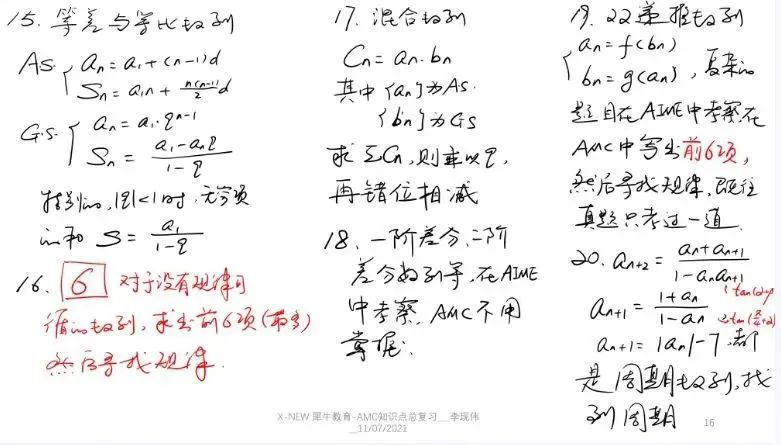 15. 等差与等比数列
A.S. { an = a1 + (n-1)d
Sn = a1n + n(n-1)/2 d
G.S. { an = a1·q^(n-1)
Sn = (a1 - anq)/(1-q)
特别的, |q|<1时, 无穷项
的和 S = a1/(1-q)
16. 6 对于没有规律可
循的数列, 求出前6项(最多)
然后寻找规律.
17. 混合数列
Cn = an·bn
其中 {an}为A.S.
{bn}为G.S
求ΣCn, 则乘以q,
再错位相减
18. 一阶差分、二阶
差分数列等, 在AIME
中考察, AMC不用
掌握.
19. 双递推数列
{ an = f(bn)
bn = g(an) , 复杂的
题目在AIME中考察, 在
AMC中写出前6项,
然后寻找规律, 既往
真题只考过一道.
20. an+2 = (an + an+1)/(1 - an an+1)
an+1 = (1+an)/(1-an)
an+1 = |an| - 7, 都
是周期数列, 找
到周期
X-NEW 犀牛教育-AMC知识点总复习__李现伟
__11/07/2021
16